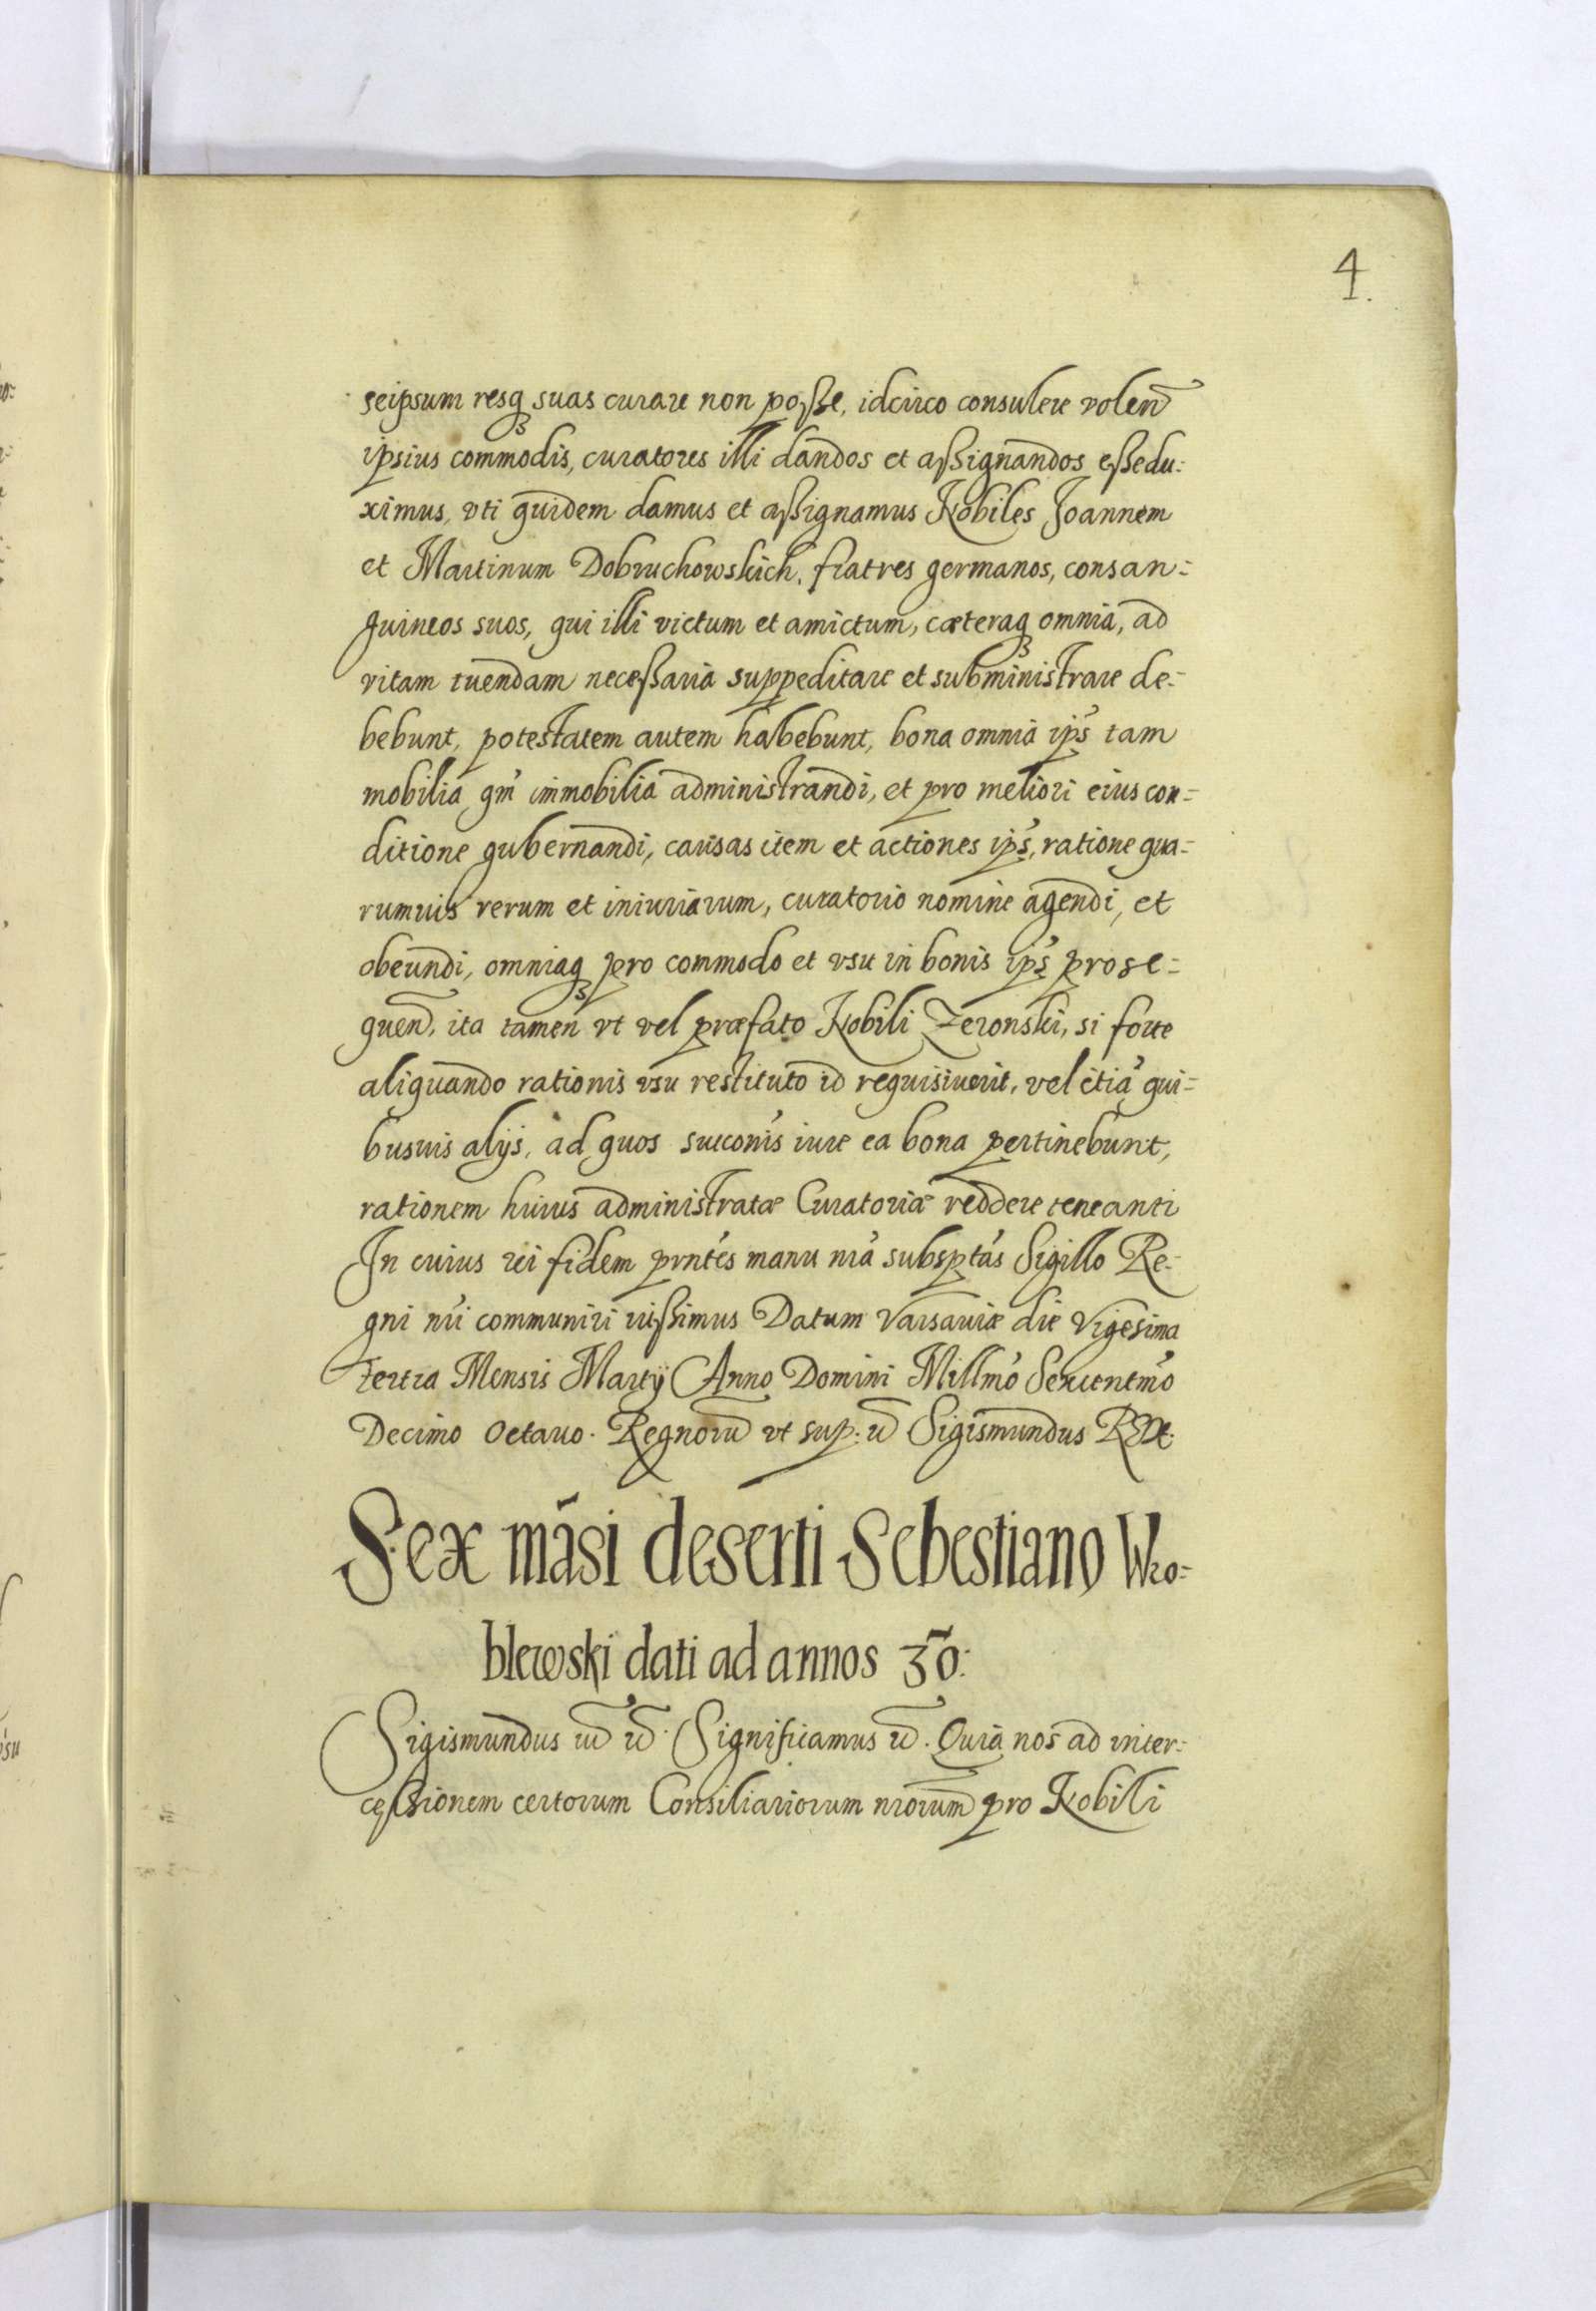 4.
seipsum resq₃ suas curare non posse, idcirco consulere volen̄
ipsius commodis, curatores illi dandos et assignandos esse du:
ximus, vti quidem damus et assignamus Nobiles Joannem
et Martinum Dobruchowskich, fratres germanos, consan=
guineos suos, qui illi victum et amictum, cæteraq₃ omnia, ad
vitam tuendam necessaria suppeditare et subministrare de=
bebunt, potestatem autem habebunt, bona omnia ip̓s tam
mobilia qm̓ immobilia administrandi, et pro meliori eius con=
ditione gubernandi, causas item et actiones ip̓s, ratione qua=
rumuis rerum et iniuriarum, curatorio nomine agendi, et
obeundi, omniaq₃ pro commodo et vsu in bonis ip̓s prose=
quen̄, ita tamen vt vel præfato Nobili Zeronski, si forte
aliquando rationis vsu restituto id requisiuerit, vel etia̓ qui=
busuis alijs, ad quos succon̓is iure ea bona pertinebunt,
rationem huius administratæ Curatoriæ reddere teneantr
In cuius rei fidem prnte̓s manu nr̓a subspta̓s Sigillo Re=
gni nr̓i communiri iussimus Datum Varsauiæ die Vigesima
Tertia Mensis Martij Anno Domini Millmo̓ Sexcentmo̓
Decimo Octauo. Regnorū vt sup: etc̄ Sigismundus Rex.
Sex ma̅si deserti Sebestiano Wro=
blewski dati ad annos 30:
Sigismundus etc̄ etc̄. Significamus etc̄. Quia nos ad inter=
cessionem certorum Consiliariorum nrorum pro Nobili